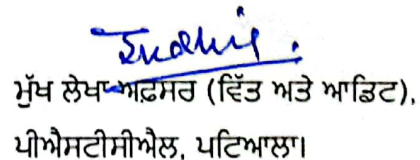 ਮੁੱਖ ਲੇਖਾ ਅਫ਼ਸਰ (ਵਿੱਤ ਅਤੇ ਆਡਿਟ),
ਪੀਐਸਟੀਸੀਐਲ, ਪਟਿਆਲਾ।